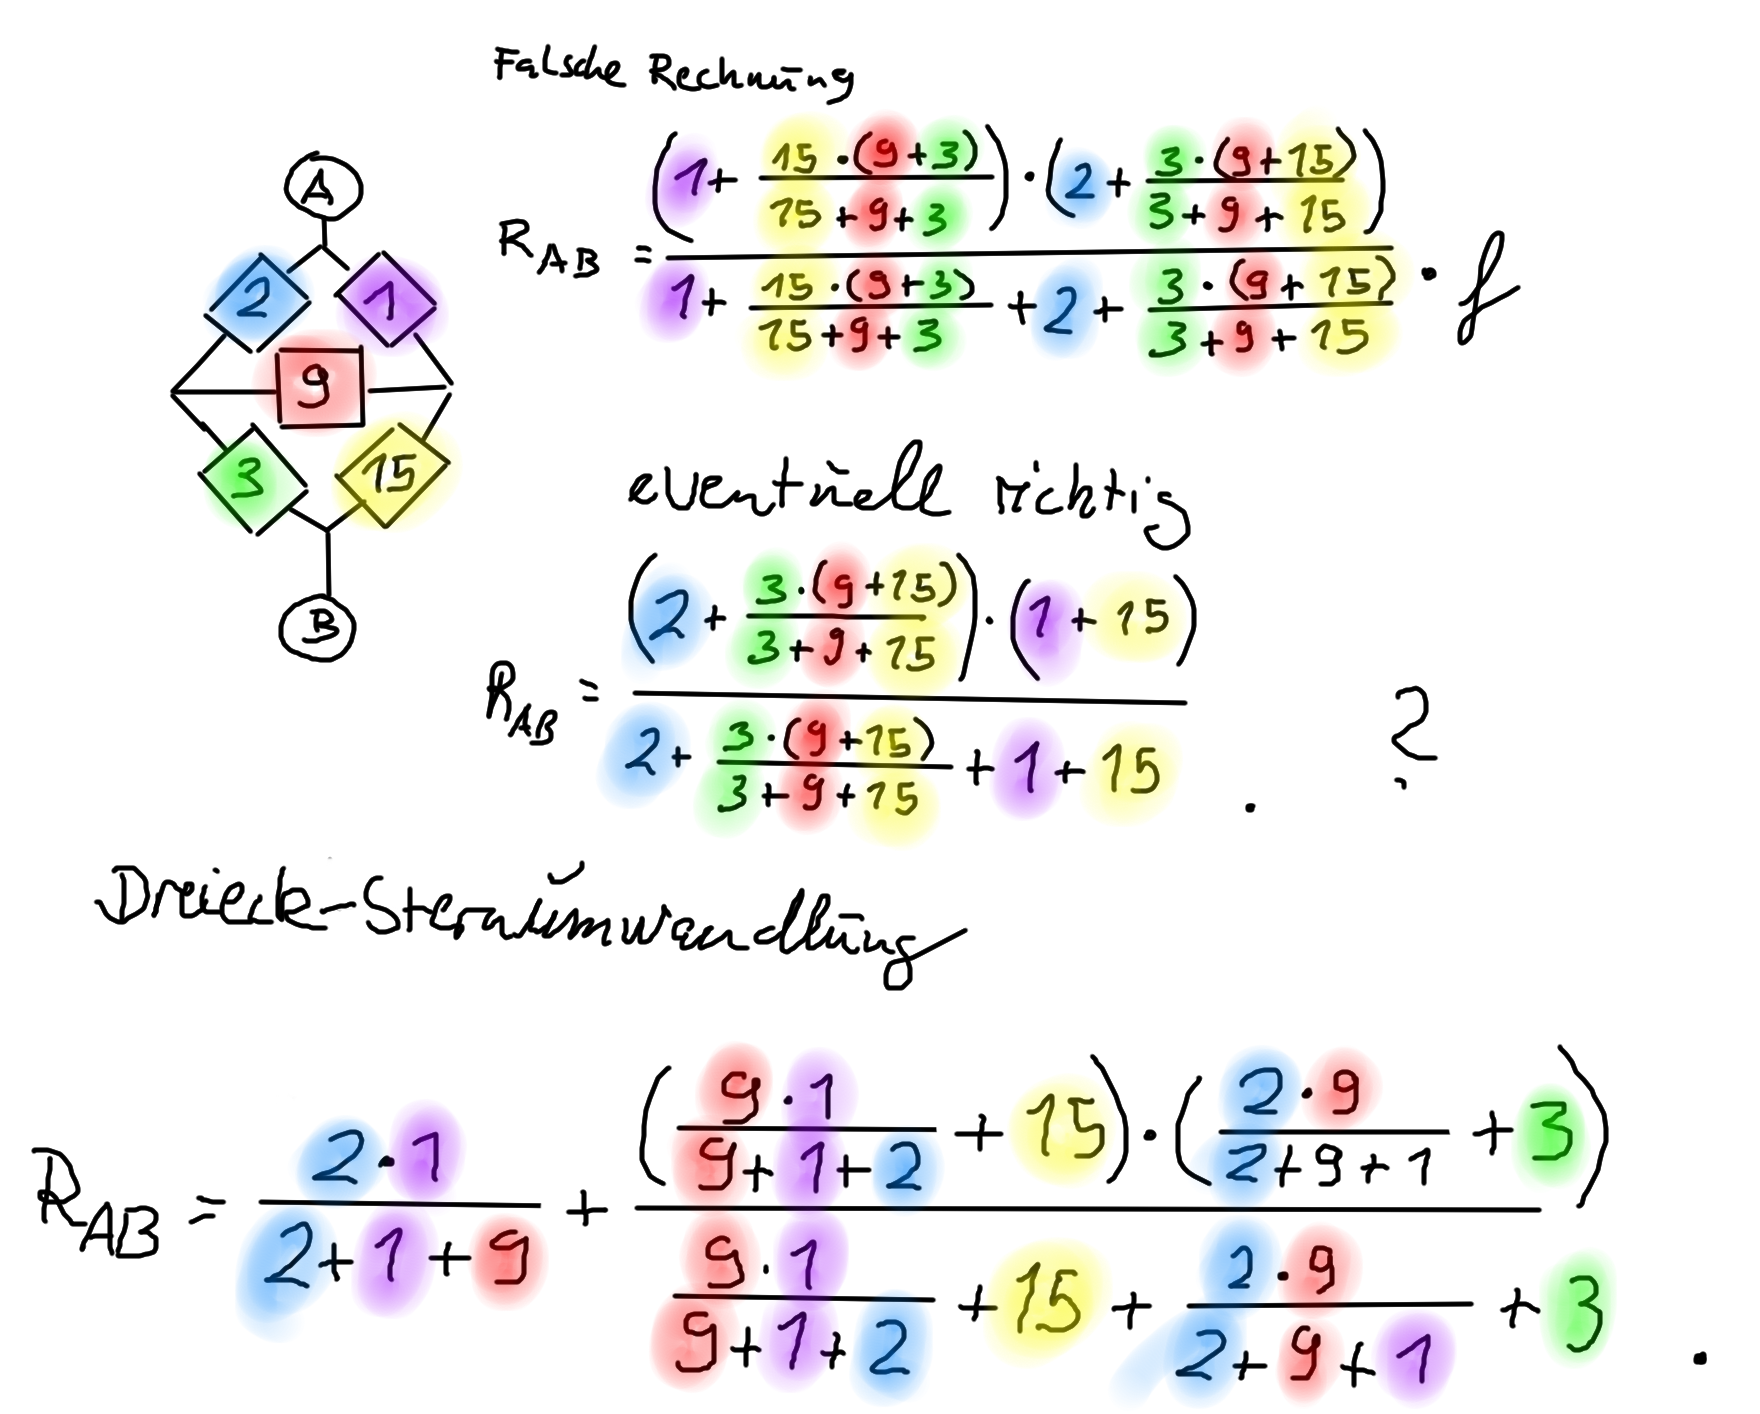 Falsche Rechnung
A
2 1
9
3 15
B
R_AB = ((1 + (15·(9+3))/(15+9+3)) · (2 + (3·(9+15))/(3+9+15))) / (1 + (15·(9+3))/(15+9+3) + 2 + (3·(9+15))/(3+9+15)) · f
eventuell richtig
R_AB = ((2 + (3·(9+15))/(3+9+15)) · (1+15)) / (2 + (3·(9+15))/(3+9+15) + 1 + 15) . ?
Dreieck-Sternumwandlung
R_AB = (2·1)/(2+1+9) + (((9·1)/(9+1+2) + 15) · ((2·9)/(2+9+1) + 3)) / ((9·1)/(9+1+2) + 15 + (2·9)/(2+9+1) + 3) .